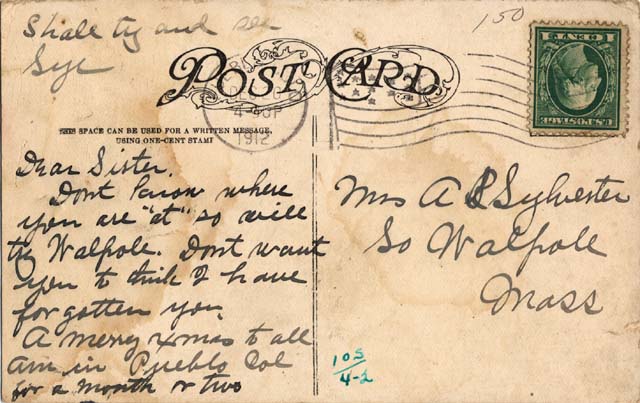 Shall try and see
Syl
150
POST CARD
4-30P
1912
U.S. POSTAGE
1 CENT 1
THIS SPACE CAN BE USED FOR A WRITTEN MESSAGE,
USING ONE-CENT STAMP
Dear Sister.
Dont know where
you are "at" so will
try Walpole. Dont want
you to think I have
forgotten you.
A merry xmas to all
Am in Pueblo Col
for a month or two
Mrs A P Sylvester
So Walpole
Mass
105
4-2